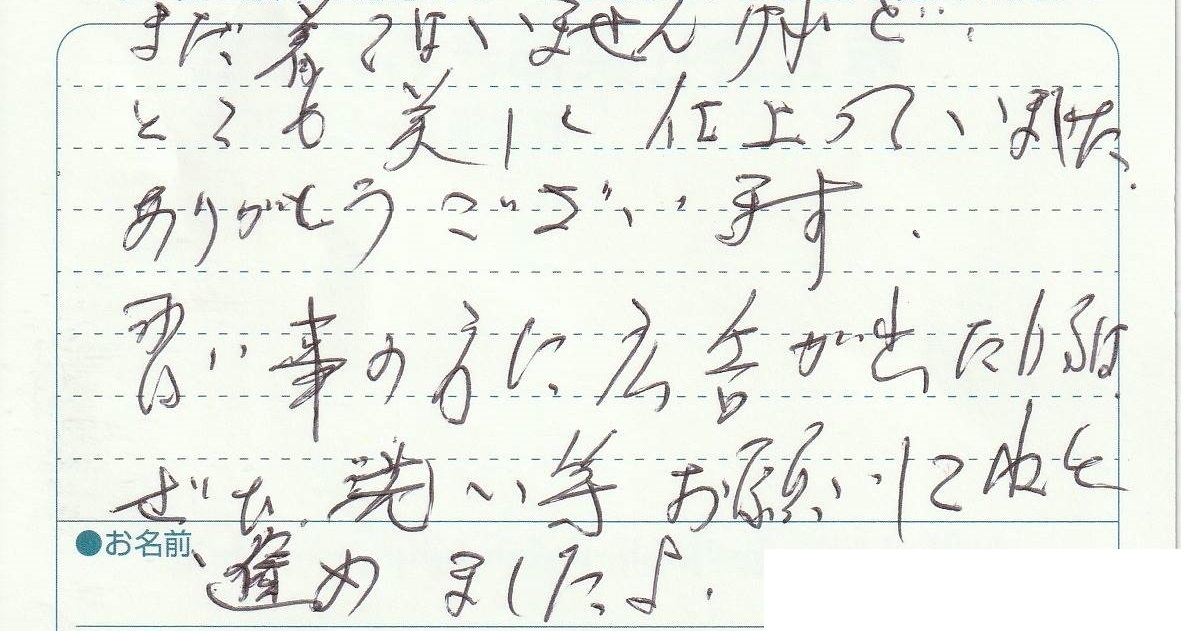 まだ着てはいませんけれど..
とても美しく仕上っていました.
ありがとうございます.
習い事の方に広告が出た
ぜひ洗い等お願いしてねと
●お名前
進めましたよ.